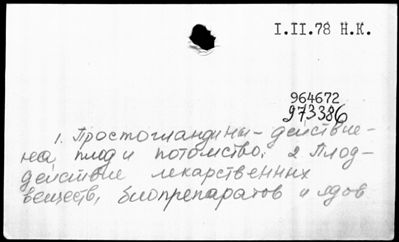 I.II.78 Н.К.
964672
973386
1. Простогландины - действие
на плод и потомство. 2 Плод-
действие лекарственных
веществ, биопрепаратов и ядов